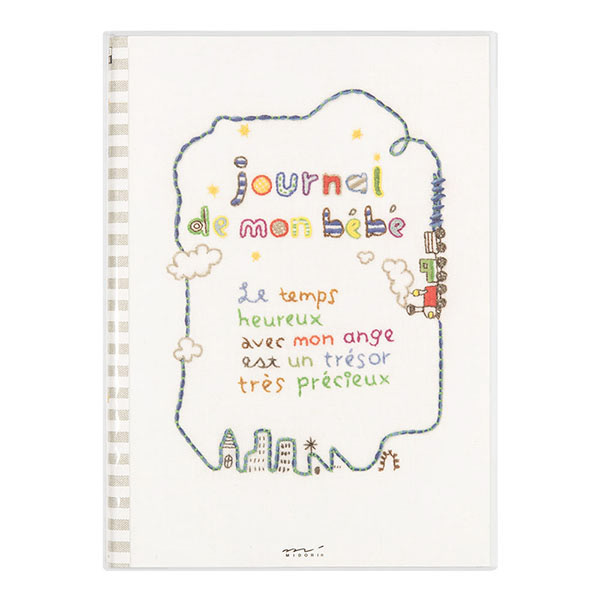 journal
de mon bébé
Le temps
heureux
avec mon ange
est un trésor
très précieux
MIDORI